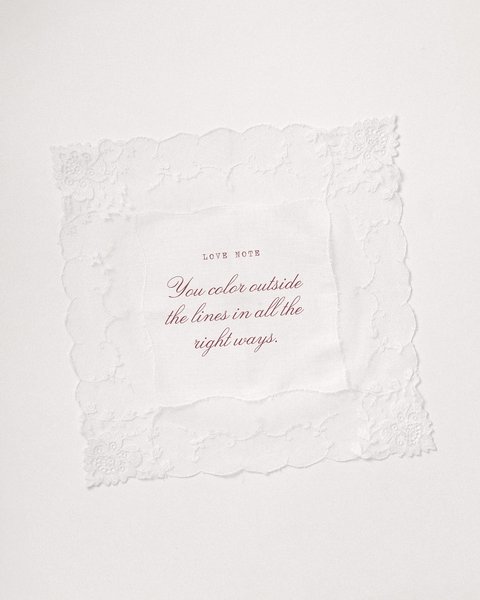 LOVE NOTE
You color outside
the lines in all the
right ways.